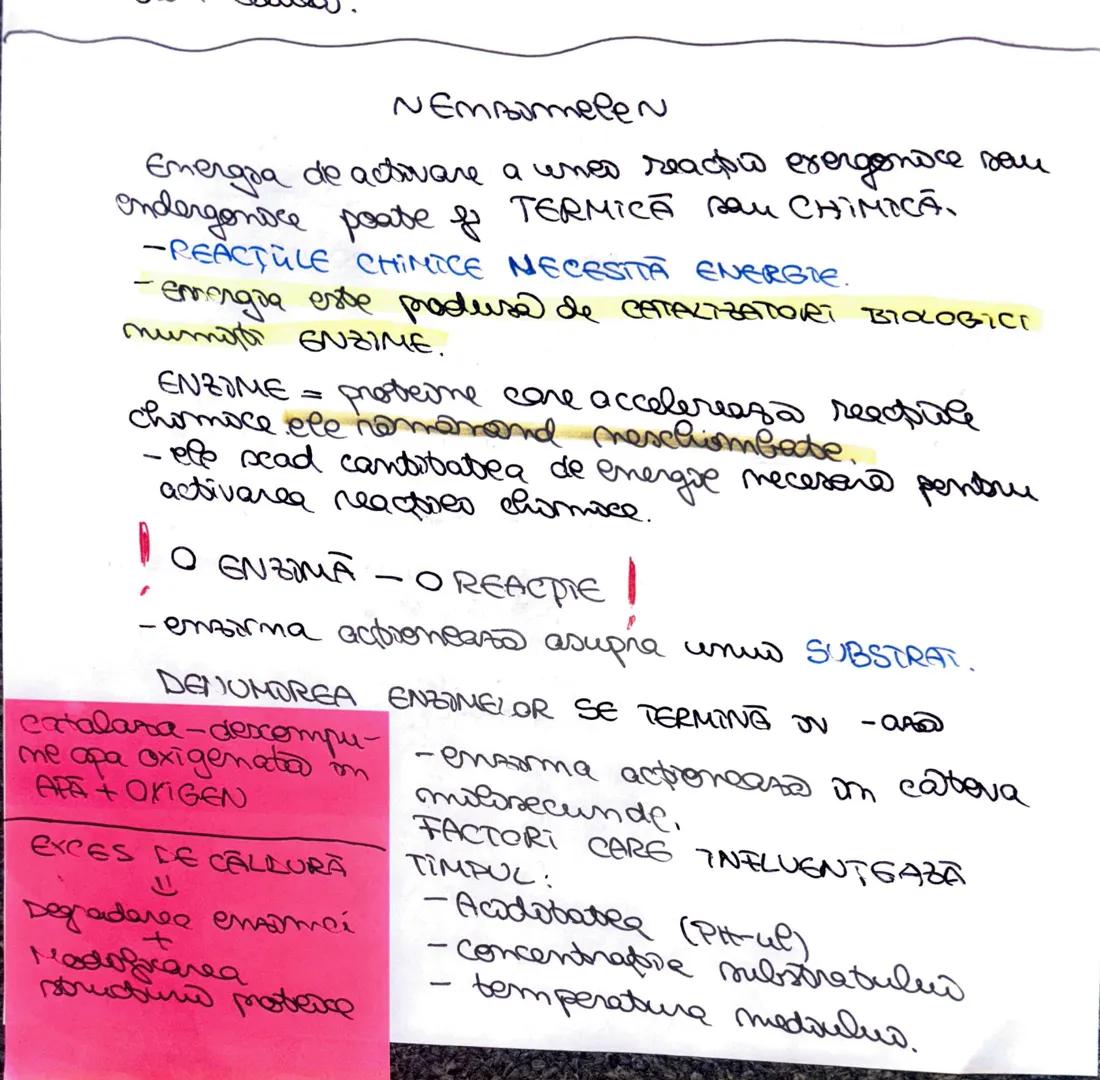 ~Enzimele~
Energia de activare a unei reacții exergonice sau
endergonice poate fi TERMICĂ sau CHIMICĂ.
-REACȚIILE CHIMICE NECESITĂ ENERGIE.
-energia este produsă de CATALIZATORI BIOLOGICI
numiți ENZIME.
ENZIME = proteine care accelerează reacțiile
chimice ele rămânând neschimbate.
- ele scad cantitatea de energie necesară pentru
activarea reacției chimice.
! O ENZIMĂ - O REACȚIE !
- enzima acționează asupra unui SUBSTRAT.
DENUMIREA ENZIMELOR SE TERMINĂ IN -ază
catalaza-descompu-
ne apa oxigenată în
APĂ + OXIGEN
EXCES DE CĂLDURĂ
=
Degradarea enzimei
+
Modificarea
structurii proteice
- enzima acționează în câteva
milisecunde.
FACTORI CARE INFLUENȚEAZĂ
TIMPUL:
- Aciditatea (PH-ul)
- concentrație substratului
- temperatura mediului.